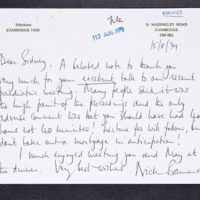 Telephone:
CAMBRIDGE
31 MADINGLEY ROAD
CAMBRIDGE
15/8/79
Dear Sidney, A belated note to thank you
very much for your excellent talk to our recent
meeting. Many people said it was
the high point of the proceedings and the only
adverse comment was that you should have had 60
not 40 minutes!
take out a mortgage in anticipation!
I much enjoyed meeting you and May at
the dinner. Very best wishes Nick